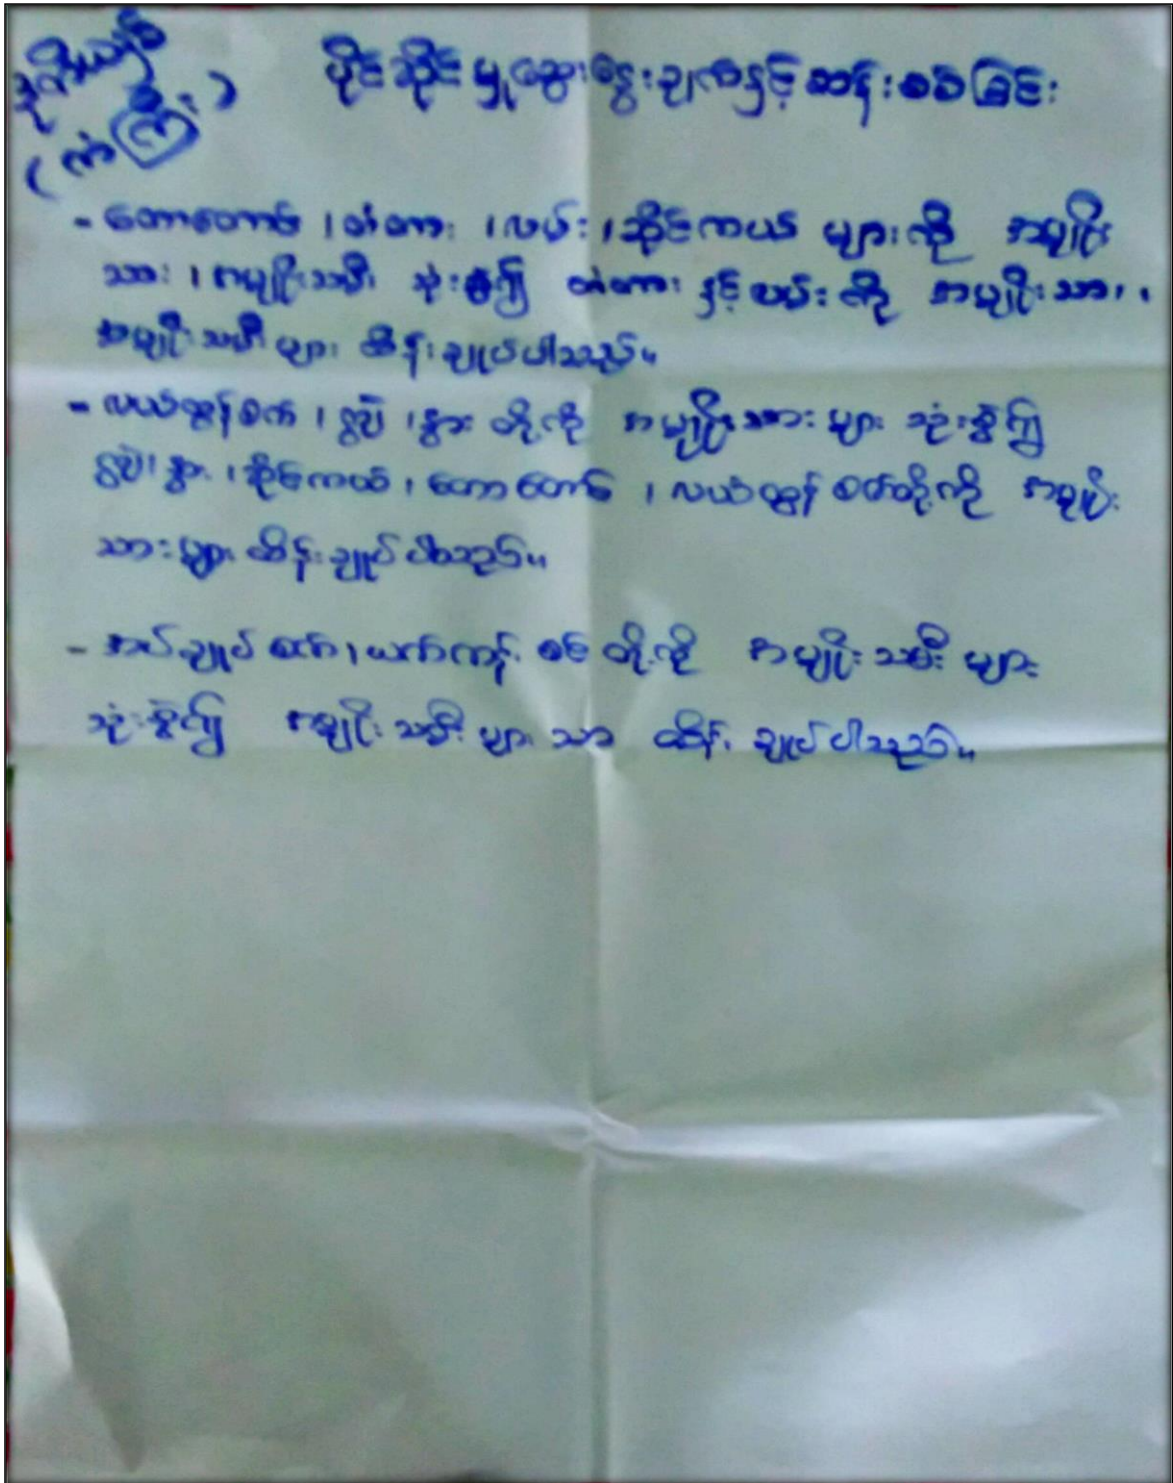 ဒုတိယ
(ကံကြီး)
ပိုင်ဆိုင်မှုဆွေးနွေးချက်နှင့်ဆန်းစစ်ခြင်း
- တောတောင်၊ တံတား၊ လမ်း၊ ဆိုင်ကယ် များကို အမျိုး
သား၊ အမျိုးသမီး သုံးစွဲ၍ တံတား နှင့် လမ်း ကို အမျိုးသား၊
အမျိုးသမီး များ ထိန်းချုပ်ပါသည်။
- လယ်ထွန်စက်၊ ၊ နွား တို့ကို အမျိုးသား များ သုံးစွဲ၍
နွား၊ ဆိုင်ကယ်၊ တောတောင်၊ လယ်ထွန် စက်တို့ကို အမျိုး
သားများ ထိန်းချုပ်ပါသည်။
- အပ်ချုပ်စက်၊ ယက်ကန်းစင် တို့ကို အမျိုးသမီး များ
သုံးစွဲ၍ အမျိုးသမီး များ သာ ထိန်းချုပ်ပါသည်။